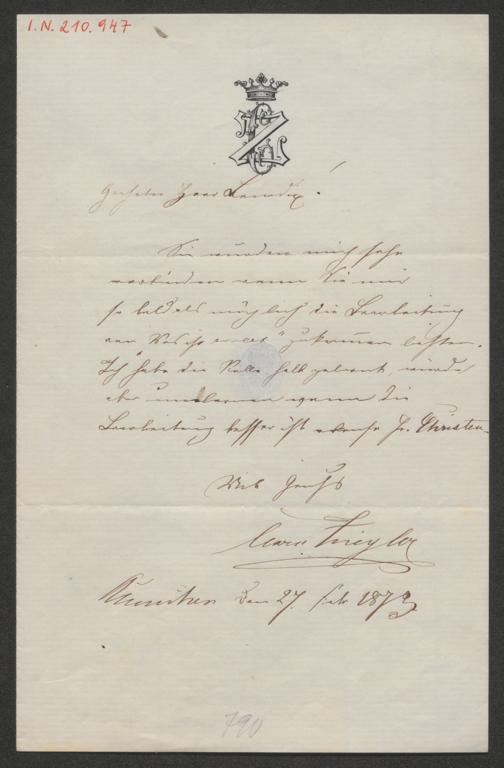 I.N. 210.947
Geehrter Herr
Sie würden mich sehr
verbinden wenn Sie mir
so bald als möglich die Bearbeitung
von " zukommen ließen.
Ich habe die Rolle halb gelernt, würde
aber umlernen wenn die
Bearbeitung besser ist Fr. Christen
Mit Gruß
Clara Ziegler
München den 27. Feb 1873
790